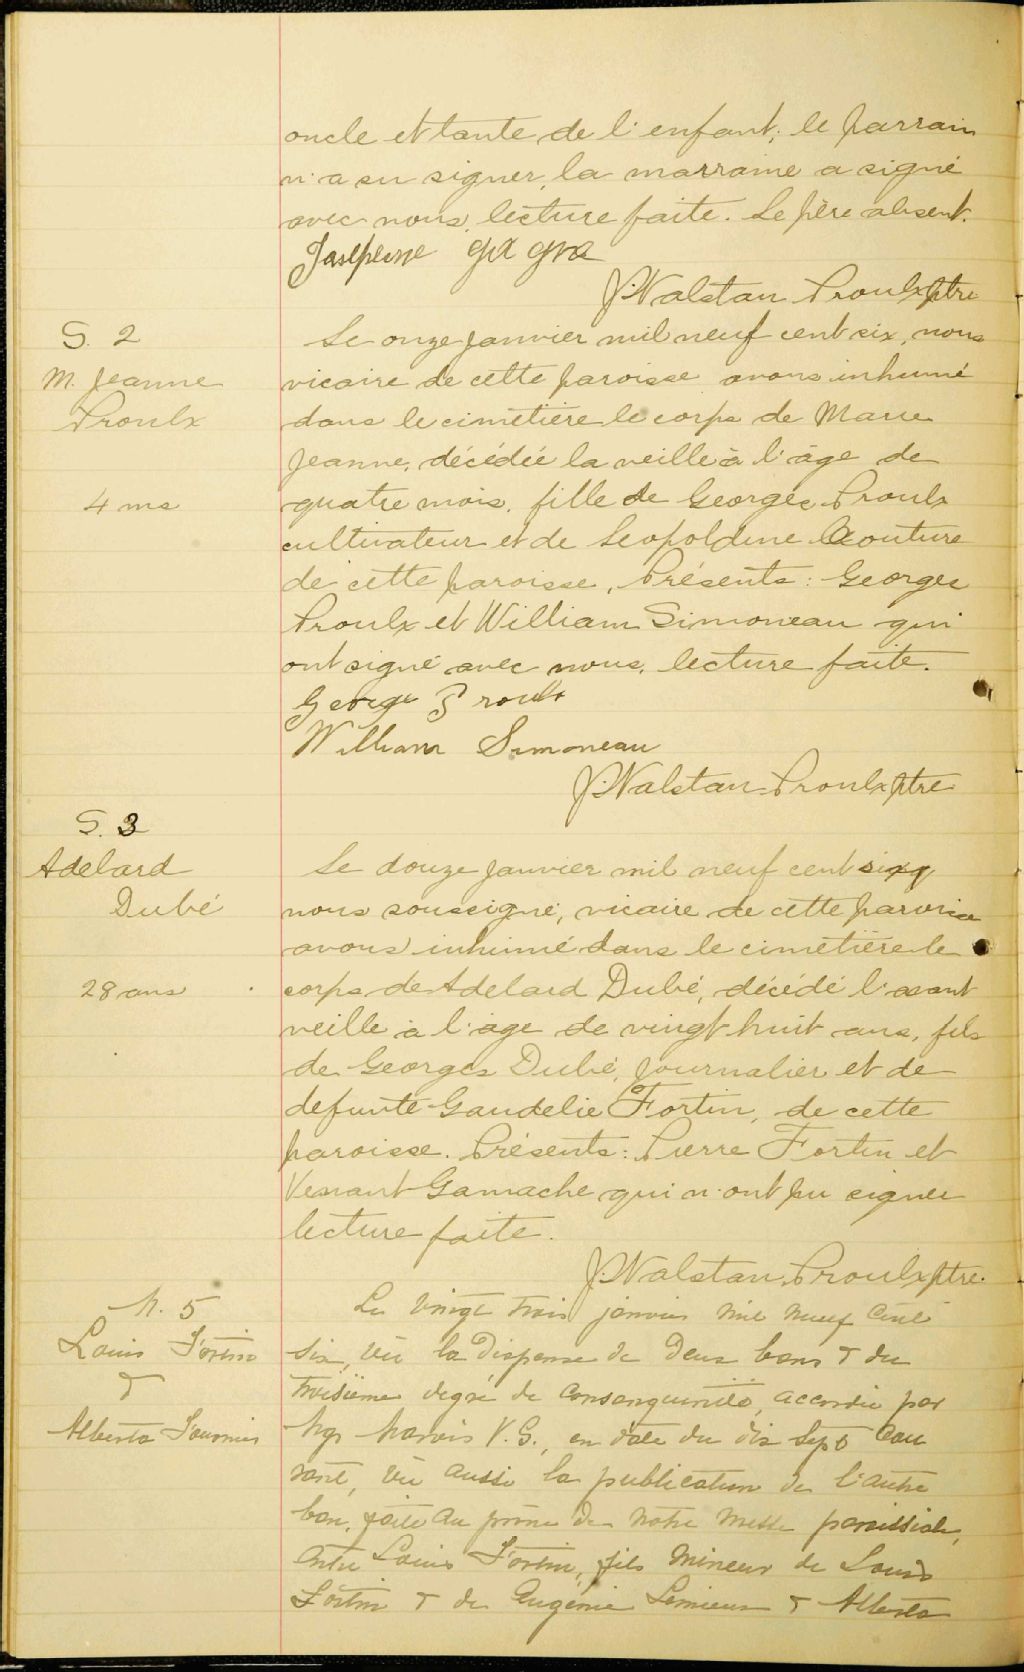 oncle et tante de l'enfant; le parrain
n'a su signer, la marraine a signé
avec nous, lecture faite. Le père absent.
Josephine gagne
J. Walstan Proulx ptre
S. 2
M. Jeanne
Proulx
4 ms
Le onze janvier mil neuf cent six, nous
vicaire de cette paroisse avons inhumé
dans le cimetière le corps de Marie
Jeanne, décédée la veille à l'âge de
quatre mois, fille de Georges Proulx
cultivateur et de Leopoldine Couture
de cette paroisse, Présents: Georges
Proulx et William Simoneau qui
ont signé avec nous, lecture faite.
George Proulx
William Simoneau
J. Walstan Proulx ptre
S. 3
Adelard
Dubé
28 ans
Le douze janvier mil neuf cent six
nous soussigné, vicaire de cette paroisse
avons inhumé dans le cimetière le
corps de Adelard Dubé, décédé l'avant
veille à l'âge de vingt huit ans, fils
de Georges Dubé, journalier et de
defunte Gaudelie Fortin, de cette
paroisse. Présents: Pierre Fortin et
Venant Gamache qui n'ont pu signer
lecture faite.
J. Walstan Proulx ptre.
M. 5
Louis Fortin
&
Alberta Fournier
Le vingt trois janvier mil neuf cent
six, vu la dispense de deux bans & du
troisième degré de consanguinité, accordée par
Mgr Marois V.G., en date du dix sept cou
rant, vu aussi la publication de l'autre
ban, faite au prône de notre messe paroissiale,
entre Louis Fortin, fils mineur de Louis
Fortin & de Eugénie Lemieux & Alberta